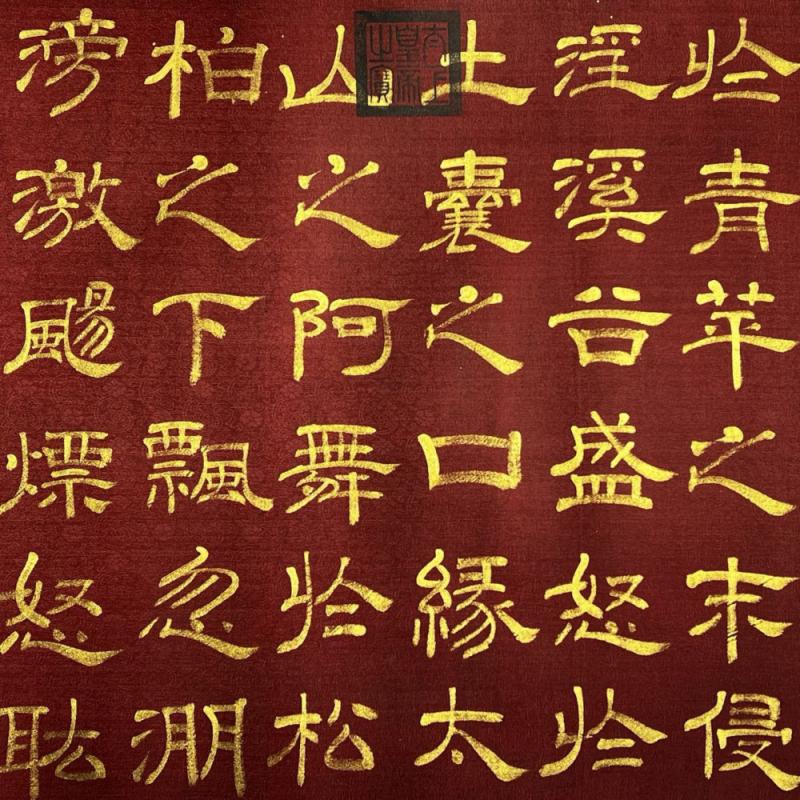 於青苹之末侵
淫溪谷盛怒於
土囊之口緣太
山之阿舞於松
柏之下飄忽淜
滂激颺熛怒耾
太上
皇帝
之寶